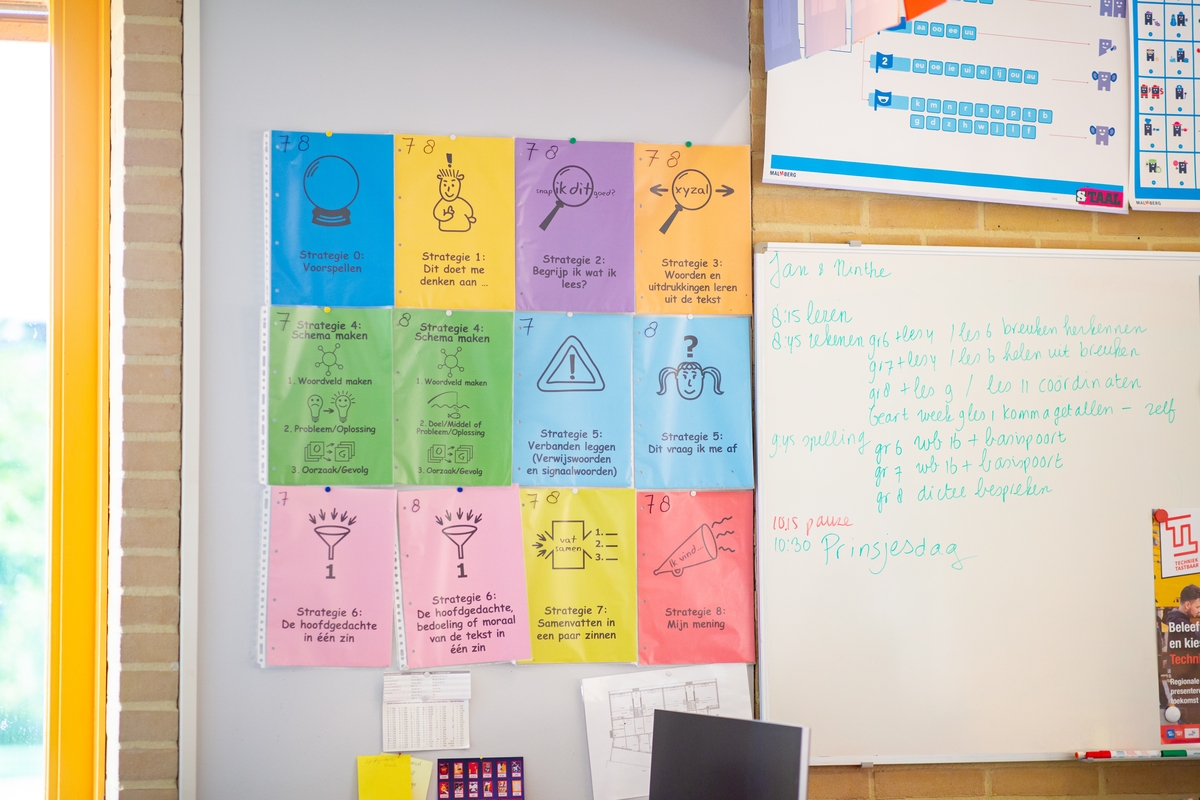 7 8
Strategie 0:
Voorspellen
7 8
!
Strategie 1:
Dit doet me
denken aan ...
7 8
snap ik dit goed?
Strategie 2:
Begrijp ik wat ik
lees?
7 8
xyzal
Strategie 3:
Woorden en
uitdrukkingen leren
uit de tekst
7
Strategie 4:
Schema maken
1. Woordveld maken
2. Probleem/Oplossing
O G
3. Oorzaak/Gevolg
8
Strategie 4:
Schema maken
1. Woordveld maken
2. Doel/Middel of
Probleem/Oplossing
O G
3. Oorzaak/Gevolg
7
!
Strategie 5:
Verbanden leggen
(Verwijswoorden
en signaalwoorden)
8
?
Strategie 5:
Dit vraag ik me af
7
1
Strategie 6:
De hoofdgedachte
in één zin
8
1
Strategie 6:
De hoofdgedachte,
bedoeling of moraal
van de tekst in
één zin
7 8
vat
samen
1.
2.
3.
Strategie 7:
Samenvatten in
een paar zinnen
7 8
Ik vind...
Strategie 8:
Mijn mening
aa oo ee uu
2 eu oe ie ui ei ij ou au
k m n r s v p t f b
g d z h w j l f
MALMBERG
STAAL
MALMBERG
Jan & Ninthe
8:15 lezen
8:45 rekenen gr6 +les 4 / les 6 breuken herkennen
gr7 +les 4 / les 6 helen uit breuken
gr8 + les 9 / les 11 coördinaten
week 9 les 1 kommagetallen – zelf
9:45 spelling gr 6 wb 1b + basispoort
gr 7 wb 1b + basispoort
gr 8 dictee bespreken
10.15 pauze
10:30 Prinsjesdag
TECHNIEK
TASTBAAR
Beleef
en kies
Techn
Regionale
presenter
toekomst